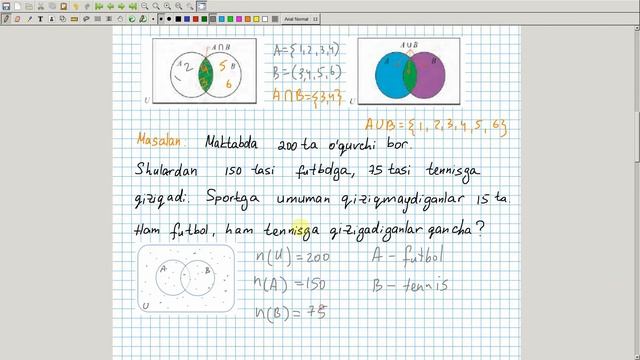 A∩B
A∪B
A={1,2,3,4)
A 2 4 5 B
1 3 6
B=(3,4,5,6)
A∩B={3,4}
U
U
A∪B={1,2,3,4,5,6}
Masalan: Maktabda 200 ta o'quvchi bor.
Shulardan 150 tasi futbolga, 75 tasi tennisga
qiziqadi. Sportga umuman qiziqmaydiganlar 15 ta.
Ham futbol, ham tennisga qiziqadiganlar qancha?
n(U)=200 A - futbol
A B
n(A)=150 B - tennis
U
n(B)=75